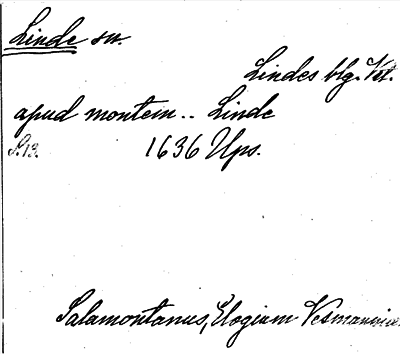 Linde sn.
Lindes blg. Vstm.
apud montem .. Linde
S. 13. 1636 Ups.
Salamontanus, Elogium Vesmanniae